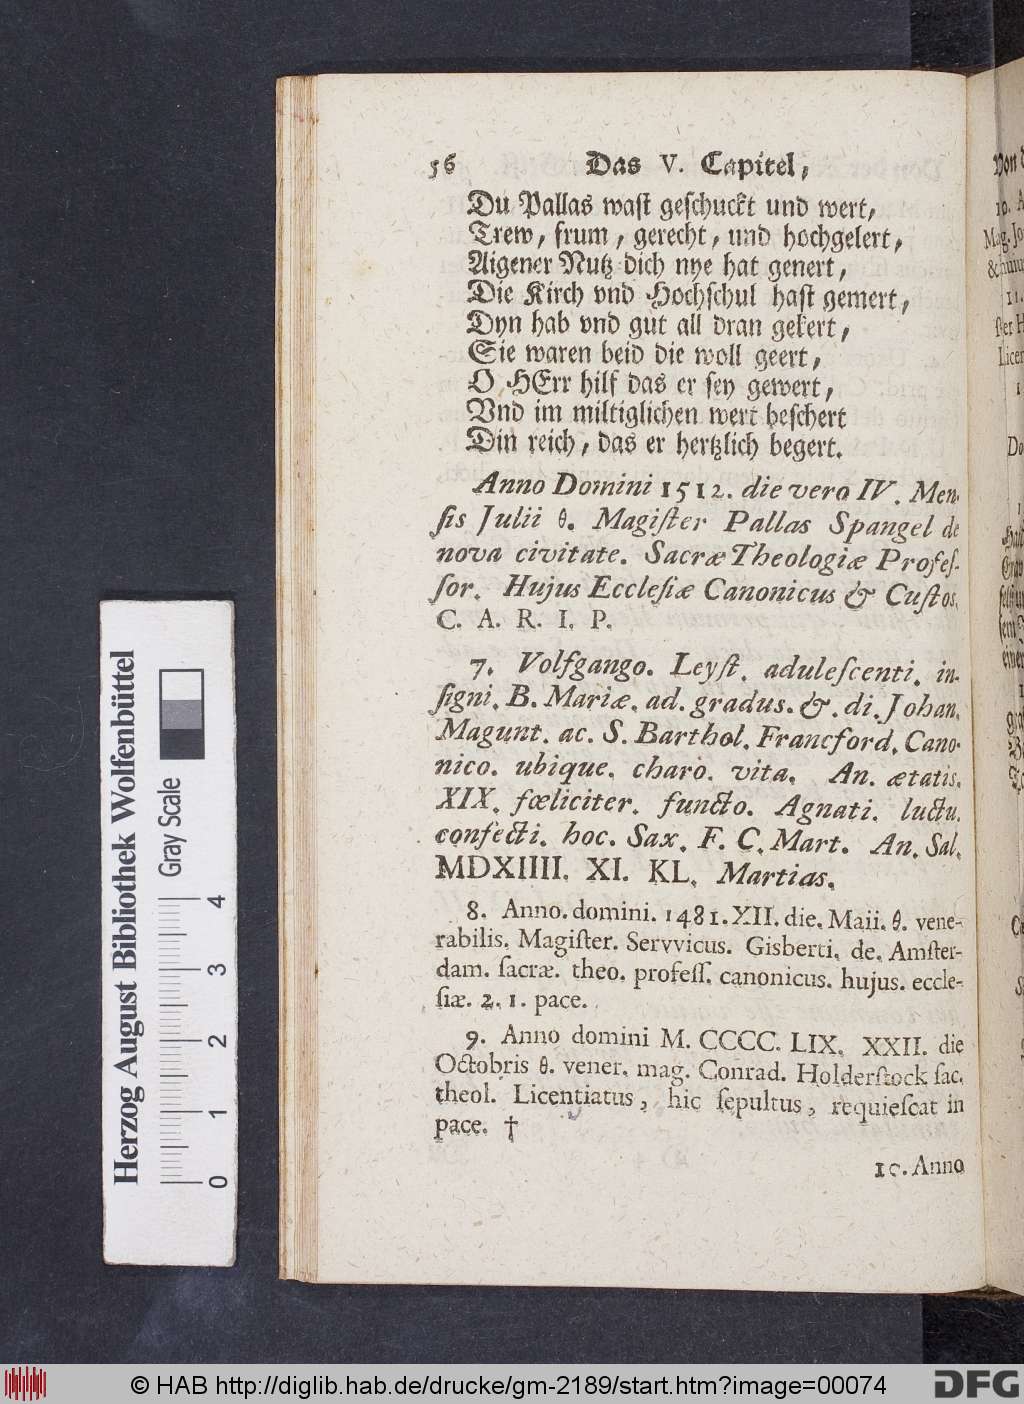 56 Das V. Capitel,
Du Pallas wast geschuckt und wert,
Trew, frum, gerecht, und hochgelert,
Aigener Nutz dich nye hat genert,
Die Kirch vnd Hochschul hast gemert,
Dyn hab vnd gut all dran gekert,
Sie waren beid die woll geert,
O HErr hilf das er sey gewert,
Vnd im miltiglichen wert beschert
Din reich, das er hertzlich begert.
Anno Domini 1512. die vero IV. Men-
sis Julii θ. Magister Pallas Spangel de
nova civitate. Sacræ Theologiæ Profes-
sor. Hujus Ecclesiæ Canonicus & Custos.
C. A. R. I. P.
7. Volfgango. Leyst. adulescenti. in-
signi. B. Mariæ. ad. gradus. &. di. Johan.
Magunt. ac. S. Barthol. Francford. Cano-
nico. ubique. charo. vita. An. ætatis.
XIX. fœliciter. functo. Agnati. luctu.
confecti. hoc. Sax. F. C. Mart. An. Sal.
MDXIIII. XI. KL. Martias.
8. Anno. domini. 1481. XII. die. Maii. θ. vene-
rabilis. Magister. Servvicus. Gisberti. de. Amster-
dam. sacræ. theo. profess. canonicus. hujus. eccle-
siæ. 2. 1. pace.
9. Anno domini M. CCCC. LIX. XXII. die
Octobris θ. vener. mag. Conrad. Holderstock sac.
theol. Licentiatus, hic sepultus, requiescat in
pace. †
10. Anno
Von
10. A
Mag. Jo
11.
Licen
Do
Herzog August Bibliothek Wolfenbüttel
Gray Scale
0 1 2 3 4
© HAB http://diglib.hab.de/drucke/gm-2189/start.htm?image=00074
DFG